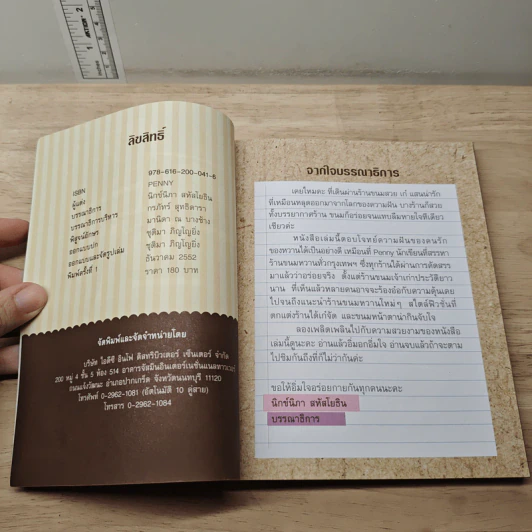 ลิขสิทธิ์
ISBN 978-616-200-041-6
ผู้แต่ง PENNY
บรรณาธิการ นิภช์นิภา สหัสโยธิน
บรรณาธิการบริหาร กรภัทร์ สุทธิดารา
พิสูจน์อักษร มานิตา ณ บางช้าง
ออกแบบปก ชุติมา ภิญโญยิ่ง
ออกแบบและจัดรูปเล่ม ชุติมา ภิญโญยิ่ง
พิมพ์ครั้งที่ 1 ธันวาคม 2552
ราคา 180 บาท
จัดพิมพ์และจัดจำหน่ายโดย
บริษัท ไอดีซี อินโฟ ดิสทริบิวเตอร์ เซ็นเตอร์ จำกัด
200 หมู่ 4 ชั้น 5 ห้อง 514 อาคารจัสมินอินเตอร์เนชั่นแนลทาวเวอร์
ถนนแจ้งวัฒนะ อำเภอปากเกร็ด จังหวัดนนทบุรี 11120
โทรศัพท์ 0-2962-1081 (อัตโนมัติ 10 คู่สาย)
โทรสาร 0-2962-1084
จากใจบรรณาธิการ
เคยไหมคะ ที่เดินผ่านร้านขนมสวย เก๋ แสนน่ารัก
ที่เหมือนหลุดออกมาจากโลกของความฝัน บางร้านก็สวย
ทั้งบรรยากาศร้าน ขนมก็อร่อยจนแทบลืมหายใจทีเดียว
เชียวค่ะ
หนังสือเล่มนี้ตอบโจทย์ความฝันของคนรัก
ของหวานได้เป็นอย่างดี เหมือนที่ Penny นักเขียนที่สรรหา
ร้านขนมหวานทั่วกรุงเทพฯ ซึ่งทุกร้านได้ผ่านการคัดสรร
มาแล้วว่าอร่อยจริง ตั้งแต่ร้านขนมเจ้าเก่าประวัติยาว
นาน ที่เห็นแล้วหลายคนอาจจะร้องอ๋อกับความคุ้นเคย
ไปจนถึงแนะนำร้านขนมหวานใหม่ๆ สไตล์ฟิวชั่นที่
ตกแต่งร้านได้เก๋จัด และขนมหน้าตาน่ากินจับใจ
ลองเพลิดเพลินไปกับความสวยงามของหนังสือ
เล่มนี้ดูนะคะ อ่านแล้วอิ่มอกอิ่มใจ อ่านจบแล้วถ้าจะตาม
ไปชิมกันถึงที่ก็ไม่ว่ากันค่ะ
ขอให้อิ่มใจอร่อยกายกันทุกคนนะคะ
นิภช์นิภา สหัสโยธิน
บรรณาธิการ